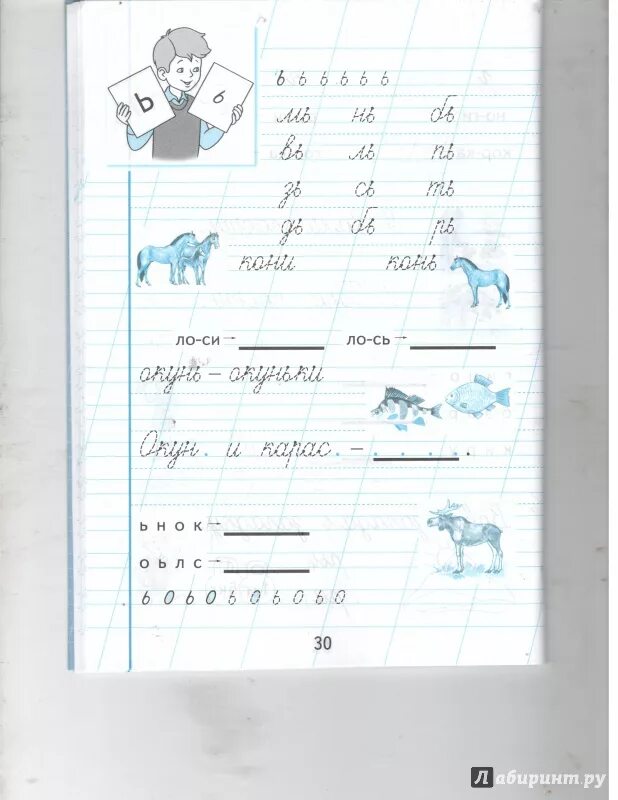 Ь ь
ь ь ь ь ь ь
мь нь бь
вь ль пь
зь сь ть
дь бь рь
кони конь
ло-си → ло-сь →
окунь – окуньки
Окун. и карас. – .
ь н о к →
о ь л с →
ь о ь о ь о ь о ь о
30
Лабиринт.ру